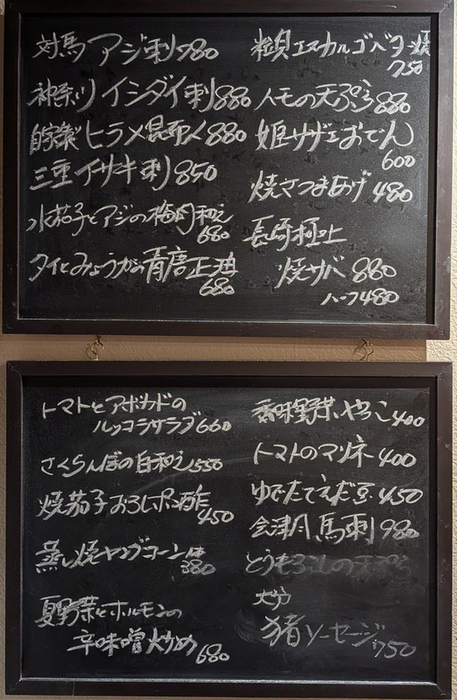 対馬 アジ刺 780
神奈川 イシダイ刺 880
自家製 ヒラメ昆布〆 880
三重 イサキ刺 850
水茄子とアジの梅肉和え
680
タイとみょうがの青唐正油
680
粒貝エスカルゴバター焼
750
ハモの天ぷら 880
姫サザエおでん
600
焼さつまあげ 480
長崎極上
焼サバ 880
ハーフ480
トマトとアボカドの
ルッコラサラダ 660
さくらんぼの白和え 550
焼茄子おろしポン酢
450
蒸し焼ヤングコーン
380
夏野菜とホルモンの
辛味噌炒め 680
香味野菜やっこ 400
トマトのマリネ 400
ゆでたてえだ豆 450
会津 馬刺 980
とうもろこしの天ぷら
猪ソーセージ 750